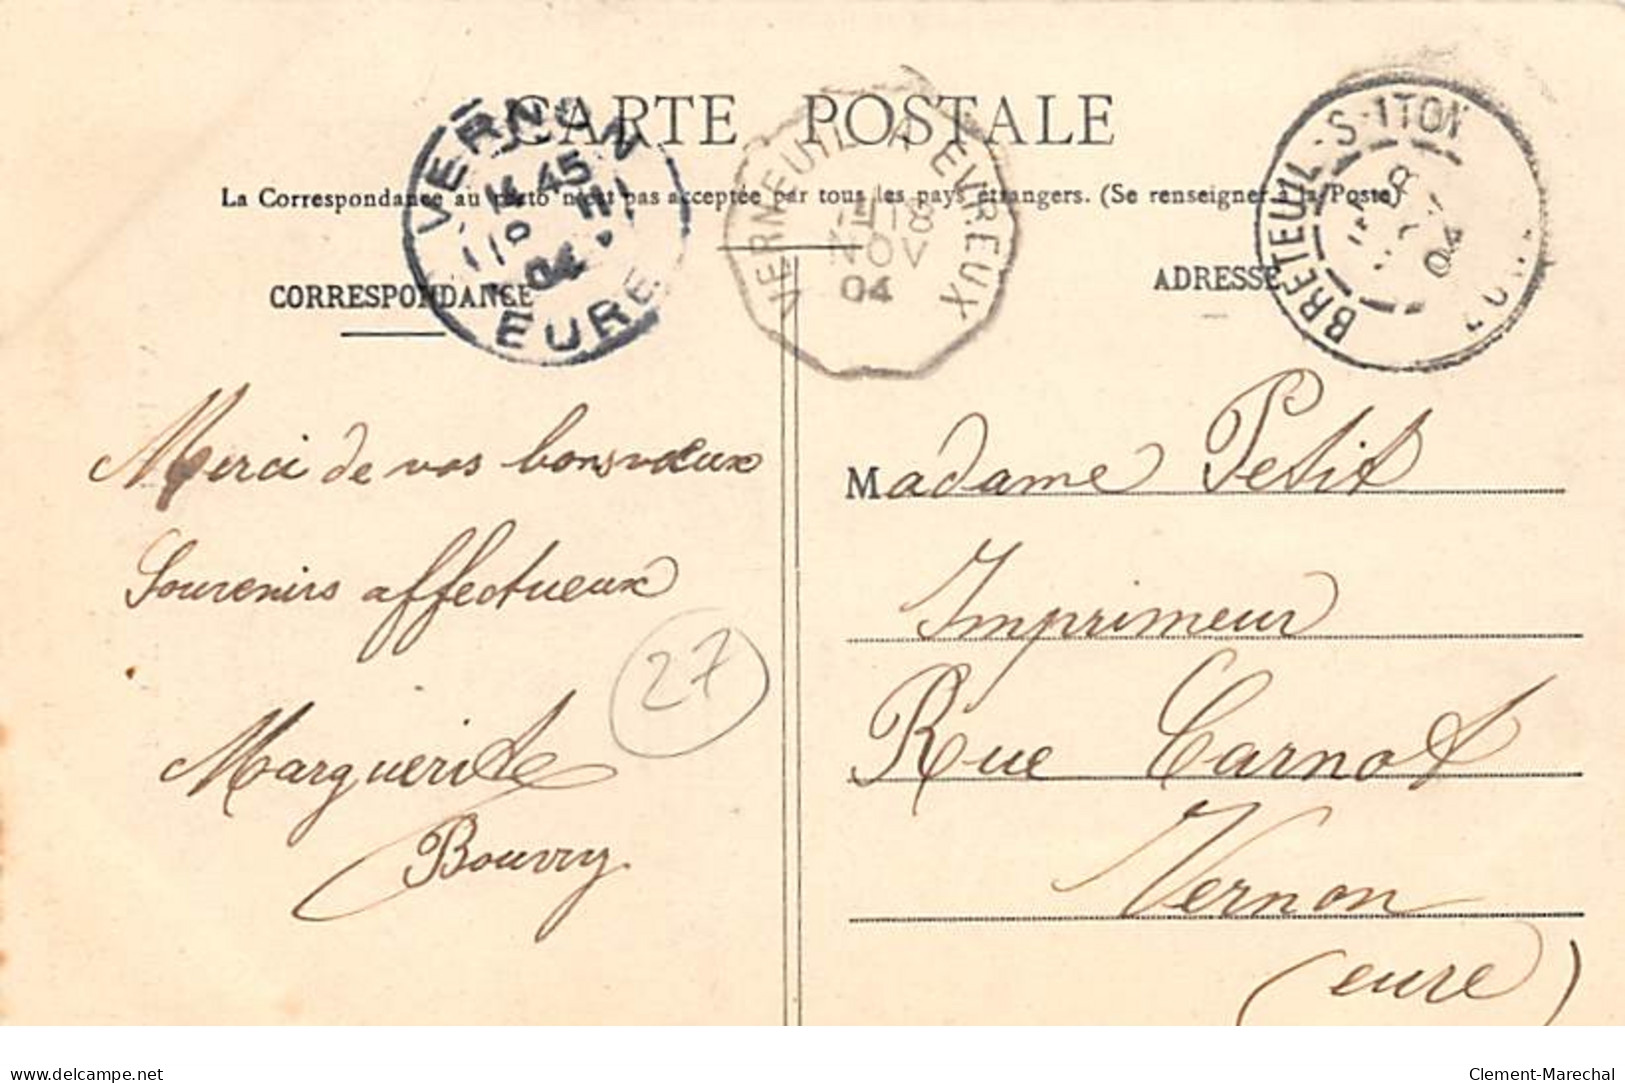 CARTE POSTALE
La Correspondance au recto n'est pas acceptée par tous les pays étrangers. (Se renseigner à la Poste)
VERNON
14 45
04
EURE
VERNEUIL A EVREUX
18
NOV
04
BRETEUIL-S-ITON
CORRESPONDANCE
ADRESSE
Merci de vos bons vœux
Souvenirs affectueux
Marguerite
Bouvry
27
Madame Petit
Imprimeur
Rue Carnot
Vernon
(eure)
delcampe.net
Clement-Marechal